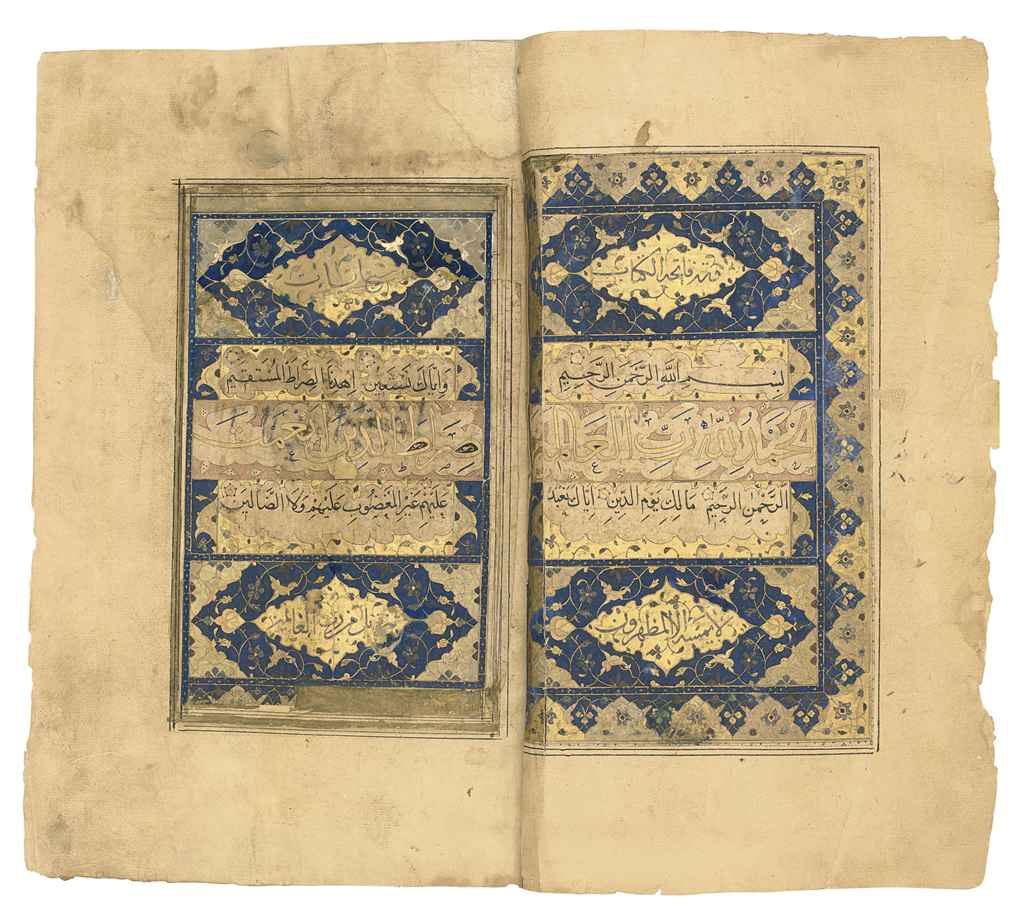 فاتحة الكتاب
بِسْمِ اللهِ الرَّحْمٰنِ الرَّحِيمِ
الْحَمْدُ لِلّٰهِ رَبِّ الْعَالَمِينَ
الرَّحْمٰنِ الرَّحِيمِ مَالِكِ يَوْمِ الدِّينِ اِيَّاكَ نَعْبُدُ
لا يمسه الا المطهرون
وَاِيَّاكَ نَسْتَعِينُ اِهْدِنَا الصِّرَاطَ الْمُسْتَقِيمَ
صِرَاطَ الَّذِينَ اَنْعَمْتَ
عَلَيْهِمْ غَيْرِ الْمَغْضُوبِ عَلَيْهِمْ وَلَا الضَّالِّينَ
تنزيل من رب العالمين